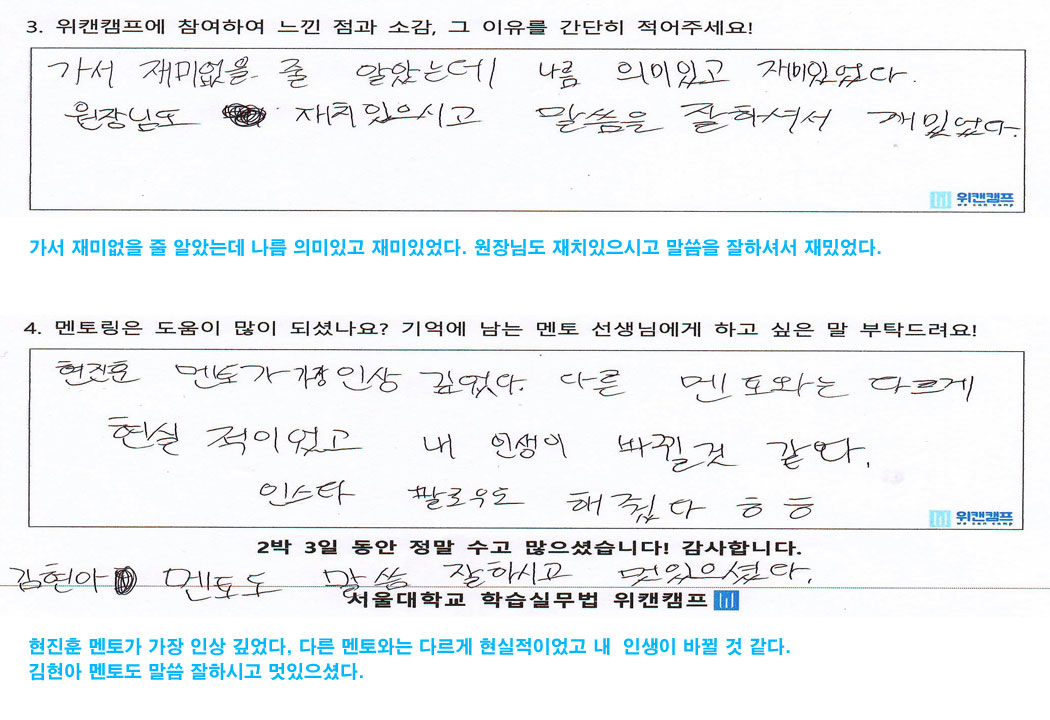 3. 위캔캠프에 참여하여 느낀 점과 소감, 그 이유를 간단히 적어주세요!
가서 재미없을 줄 알았는데 나름 의미있고 재미있었다.
원장님도 재치있으시고 말씀을 잘하셔서 재밌었다.
위캔캠프
we can camp
가서 재미없을 줄 알았는데 나름 의미있고 재미있었다. 원장님도 재치있으시고 말씀을 잘하셔서 재밌었다.
4. 멘토링은 도움이 많이 되셨나요? 기억에 남는 멘토 선생님에게 하고 싶은 말 부탁드려요!
현진훈 멘토가 가장 인상 깊었다. 다른 멘토와는 다르게
현실적이었고 내 인생이 바뀔것 같다.
인스타 팔로우도 해줬다 ㅎㅎ
위캔캠프
we can camp
2박 3일 동안 정말 수고 많으셨습니다! 감사합니다.
김현아 멘토도 말씀 잘하시고 멋있으셨다.
서울대학교 학습실무법 위캔캠프
현진훈 멘토가 가장 인상 깊었다, 다른 멘토와는 다르게 현실적이었고 내 인생이 바뀔 것 같다.
김현아 멘토도 말씀 잘하시고 멋있으셨다.